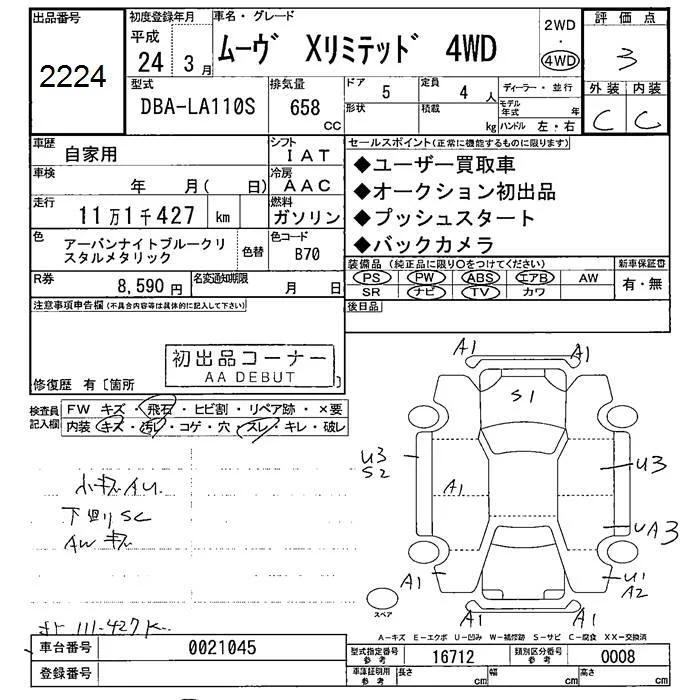 出品番号
2224
初度登録年月
平成
24 3月
車名・グレード
ムーヴ Xリミテッド 4WD
2WD
・
4WD
評価点
3
型式
DBA-LA110S
排気量
658
CC
ドア
5
定員
4 人
形状
積載
kg
ディーラー・並行
モデル年式 年
ハンドル 左・右
外装 内装
C C
車歴
自家用
シフト
IAT
車検
年 月( 日)
冷房
AAC
走行
11万1千427 km
燃料
ガソリン
色
アーバンナイトブルークリ
スタルメタリック
色替
色コード
B70
R券
8,590円
名変通知期限
月 日
セールスポイント(正常に機能するものに限ります)
◆ユーザー買取車
◆オークション初出品
◆プッシュスタート
◆バックカメラ
装備品(純正品に限り○をつけてください)
PS PW ABS エアB AW
SR ナビ TV カワ
新車保証書
有・無
後日品
注意事項申告欄(不具合内容等は具体的に記入して下さい)
初出品コーナー
AA DEBUT
修復歴 有〔箇所 〕
検査員
記入欄
FW キズ・飛石・ヒビ割・リペア跡・×要
内装 キズ・汚れ・コゲ・穴・スレ・キレ・破レ
小キズ AU
下回り SC
AW キズ
111-427K
A1
A1
S1
U3
S2
A1
U3
UA3
A1
U1
A2
A1
A1
スペア
A-キズ E-エクボ U-凹み W-補修跡 S-サビ C-腐食 XX-交換済
車台番号
0021045
型式指定番号
参考
16712
類別区分番号
参考
0008
登録番号
車庫証明用
参考
長さ cm
幅 cm
高さ cm